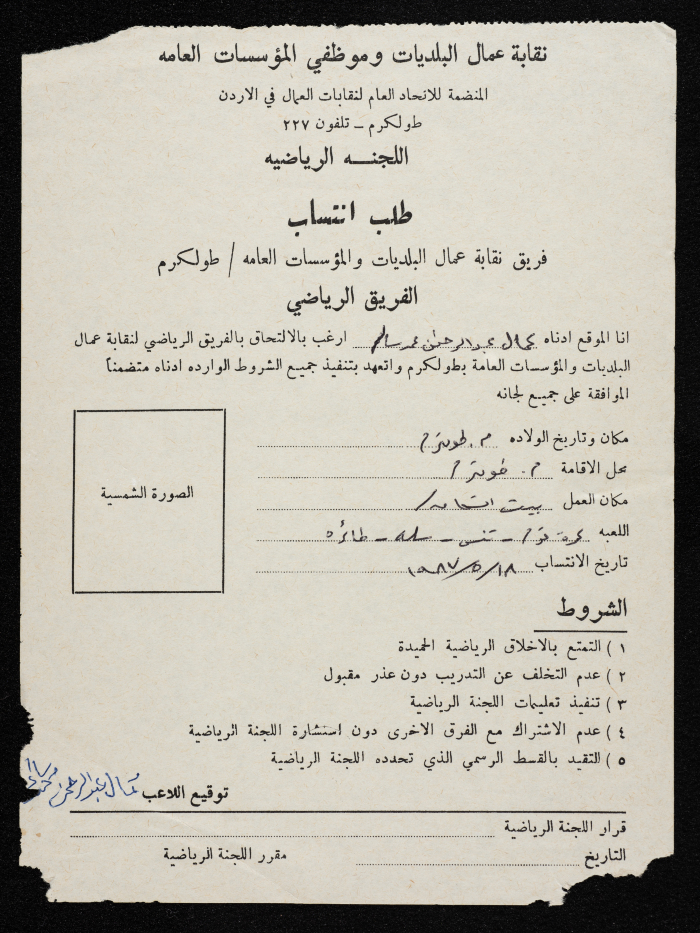 نقابة عمال البلديات وموظفي المؤسسات العامه
المنضمة للاتحاد العام لنقابات العمال في الاردن
طولكرم - تلفون ٢٢٧
اللجنـــه الرياضيه
طلب انتساب
فريق نقابة عمال البلديات والمؤسسات العامه / طولكرم
الفريق الرياضي
انا الموقع ادناه كمال عبدالرحمن محمد سالم ارغب بالالتحاق بالفريق الرياضي لنقابة عمال
البلديات والمؤسسات العامة بطولكرم واتعهد بتنفيذ جميع الشروط الوارده ادناه متضمناً
الموافقة على جميع لجانه
مكان وتاريخ الولاده م. طولكرم
محل الاقامة م. طولكرم
مكان العمل بيت
اللعبه كرة قدم - تنس - سله - طائره
تاريخ الانتساب ١٩٨٧/٥/١٨
الصورة الشمسية
الشروط
١ ) التمتع بالاخلاق الرياضية الحميدة
٢ ) عدم التخلف عن التدريب دون عذر مقبول
٣ ) تنفيذ تعليمات اللجنة الرياضية
٤ ) عدم الاشتراك مع الفرق الاخرى دون استشارة اللجنة الرياضية
٥ ) التقيد بالقسط الرسمي الذي تحدده اللجنة الرياضية
توقيع اللاعب كمال عبدالرحمن محمد
قرار اللجنة الرياضية
التاريخ
مقرر اللجنة الرياضية